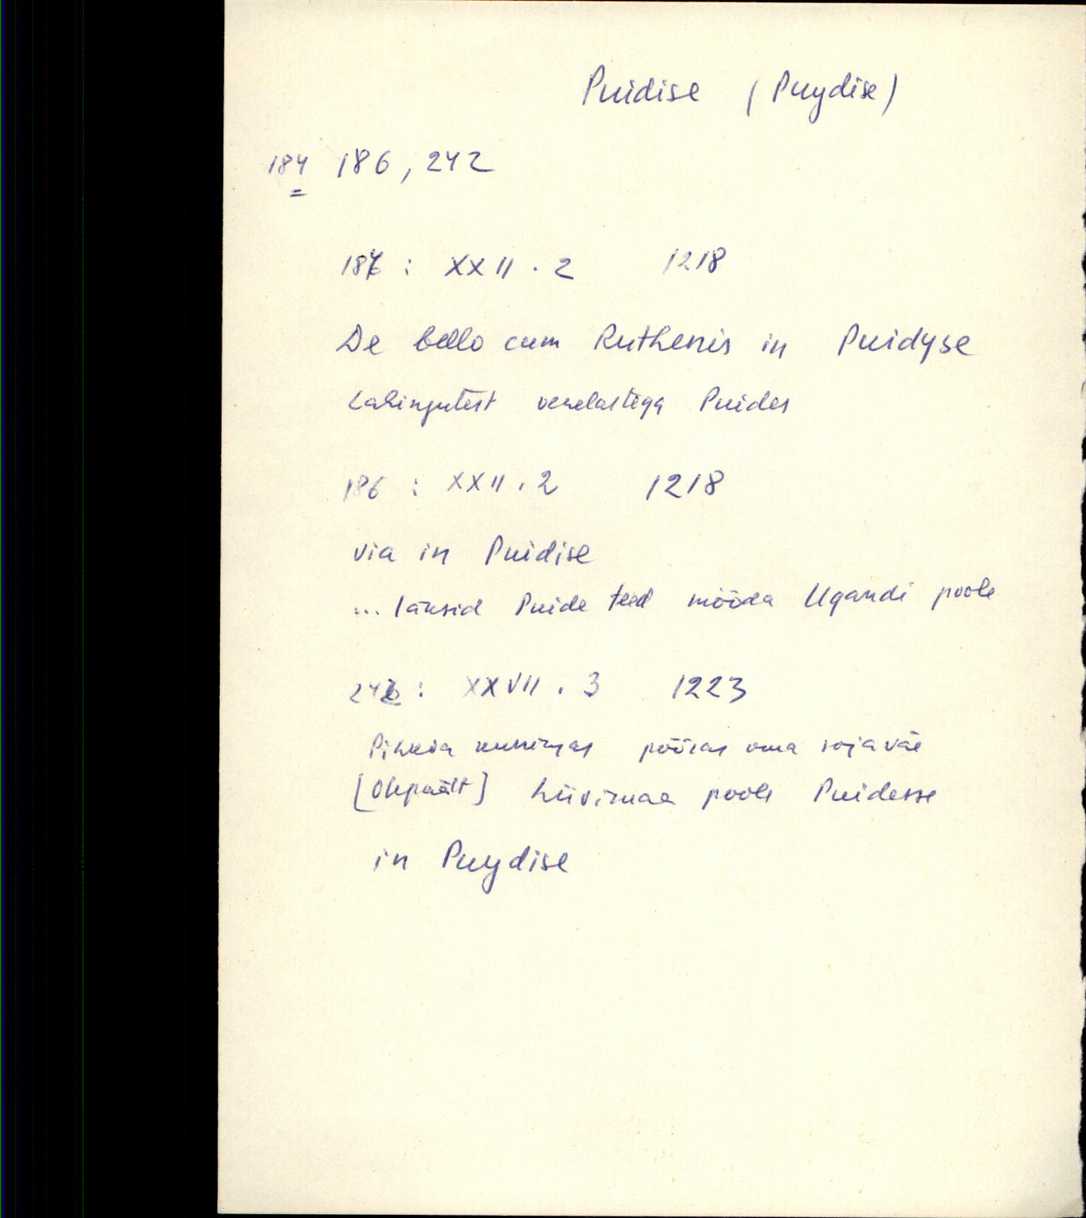 Puidise (Puydise)
184 186, 242
184 : XXII . 2 1218
De bello cum Ruthenis in Puidyse
Lahingutest venelastega Puides
186 : XXII . 2 1218
via in Puidise
... läksid Puide teed mööda Ugandi poole
242 : XXVII . 3 1223
Pihkva kuningas pööras oma sõjaväe
[Otepäält] Liivimaa poole Puidesse
in Puydise